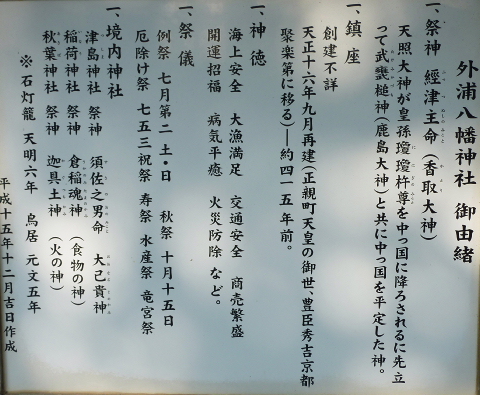 外浦八幡神社 御由緒
一、祭神 經津主命(香取大神)
天照大神が皇孫瓊瓊杵尊を中っ国に降ろされるに先立
って武甕槌神(鹿島大神)と共に中っ国を平定した神。
一、鎮座
創建不詳
天正十六年九月再建(正親町天皇の御世、豊臣秀吉京都
聚楽第に移る)―約四一五年前。
一、神徳
海上安全 大漁満足 交通安全 商売繁盛
開運招福 病気平癒 火災防除 など。
一、祭儀
例祭 七月第二土・日 秋祭 十月十五日
厄除け祭 七五三祝祭 寿祭 水産祭 竜宮祭
一、境内神社
津島神社 祭神 須佐之男命 大己貴神
稲荷神社 祭神 倉稲魂神(食物の神)
秋葉神社 祭神 迦具土神(火の神)
※石灯籠 天明六年 鳥居 元文五年
平成十五年十二月吉日作成